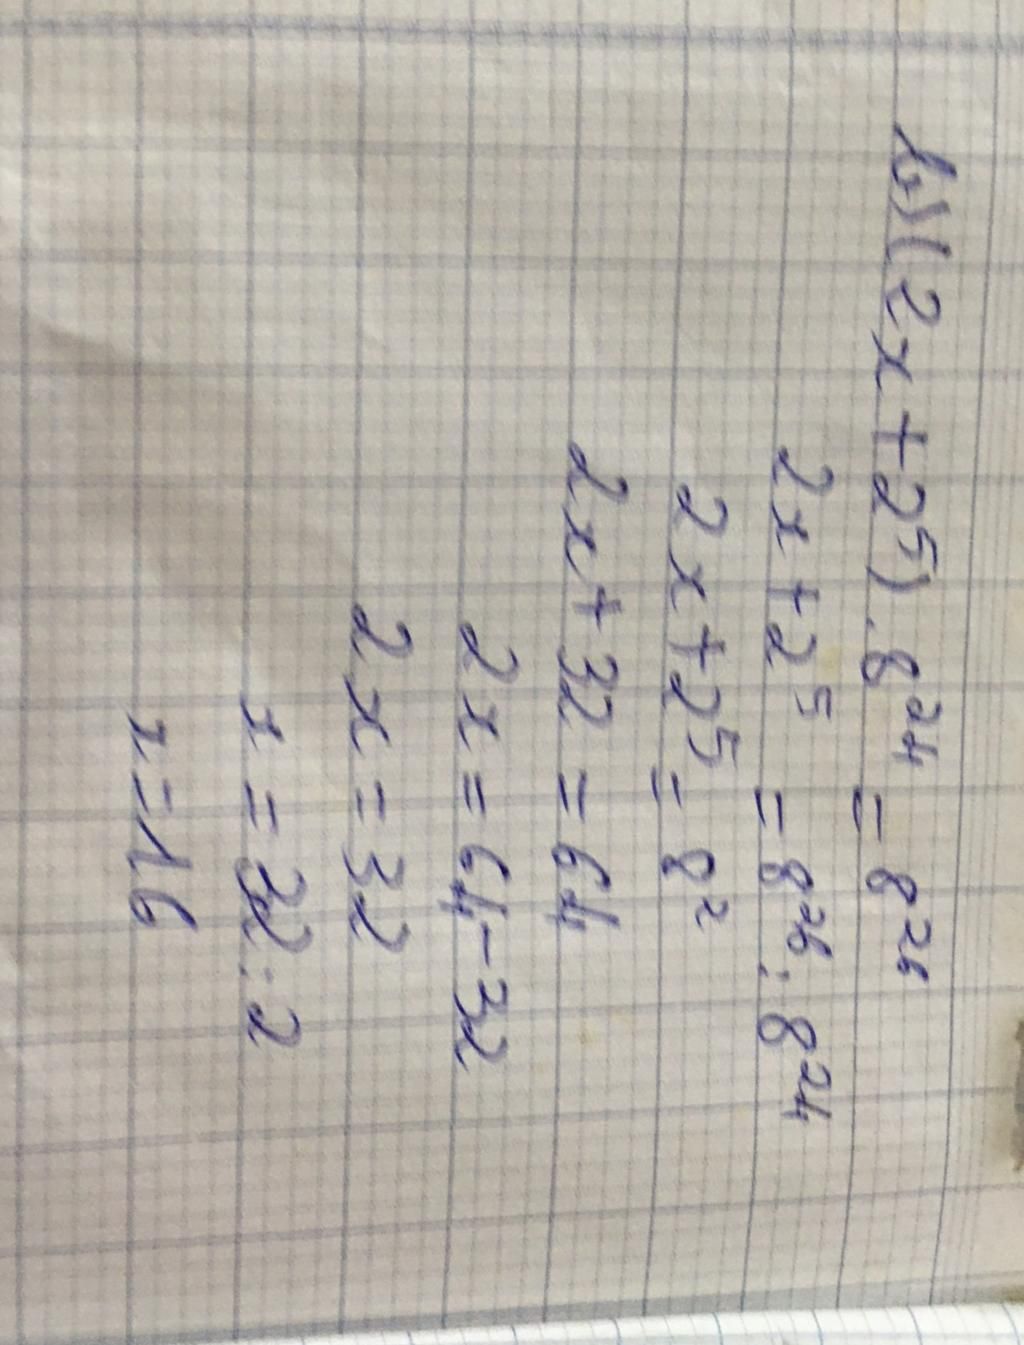 b) (2x + 2⁵) . 8²⁴ = 8²⁶
2x + 2⁵ = 8²⁶ : 8²⁴
2x + 2⁵ = 8²
2x + 32 = 64
2x = 64 - 32
2x = 32
x = 32 : 2
x = 16